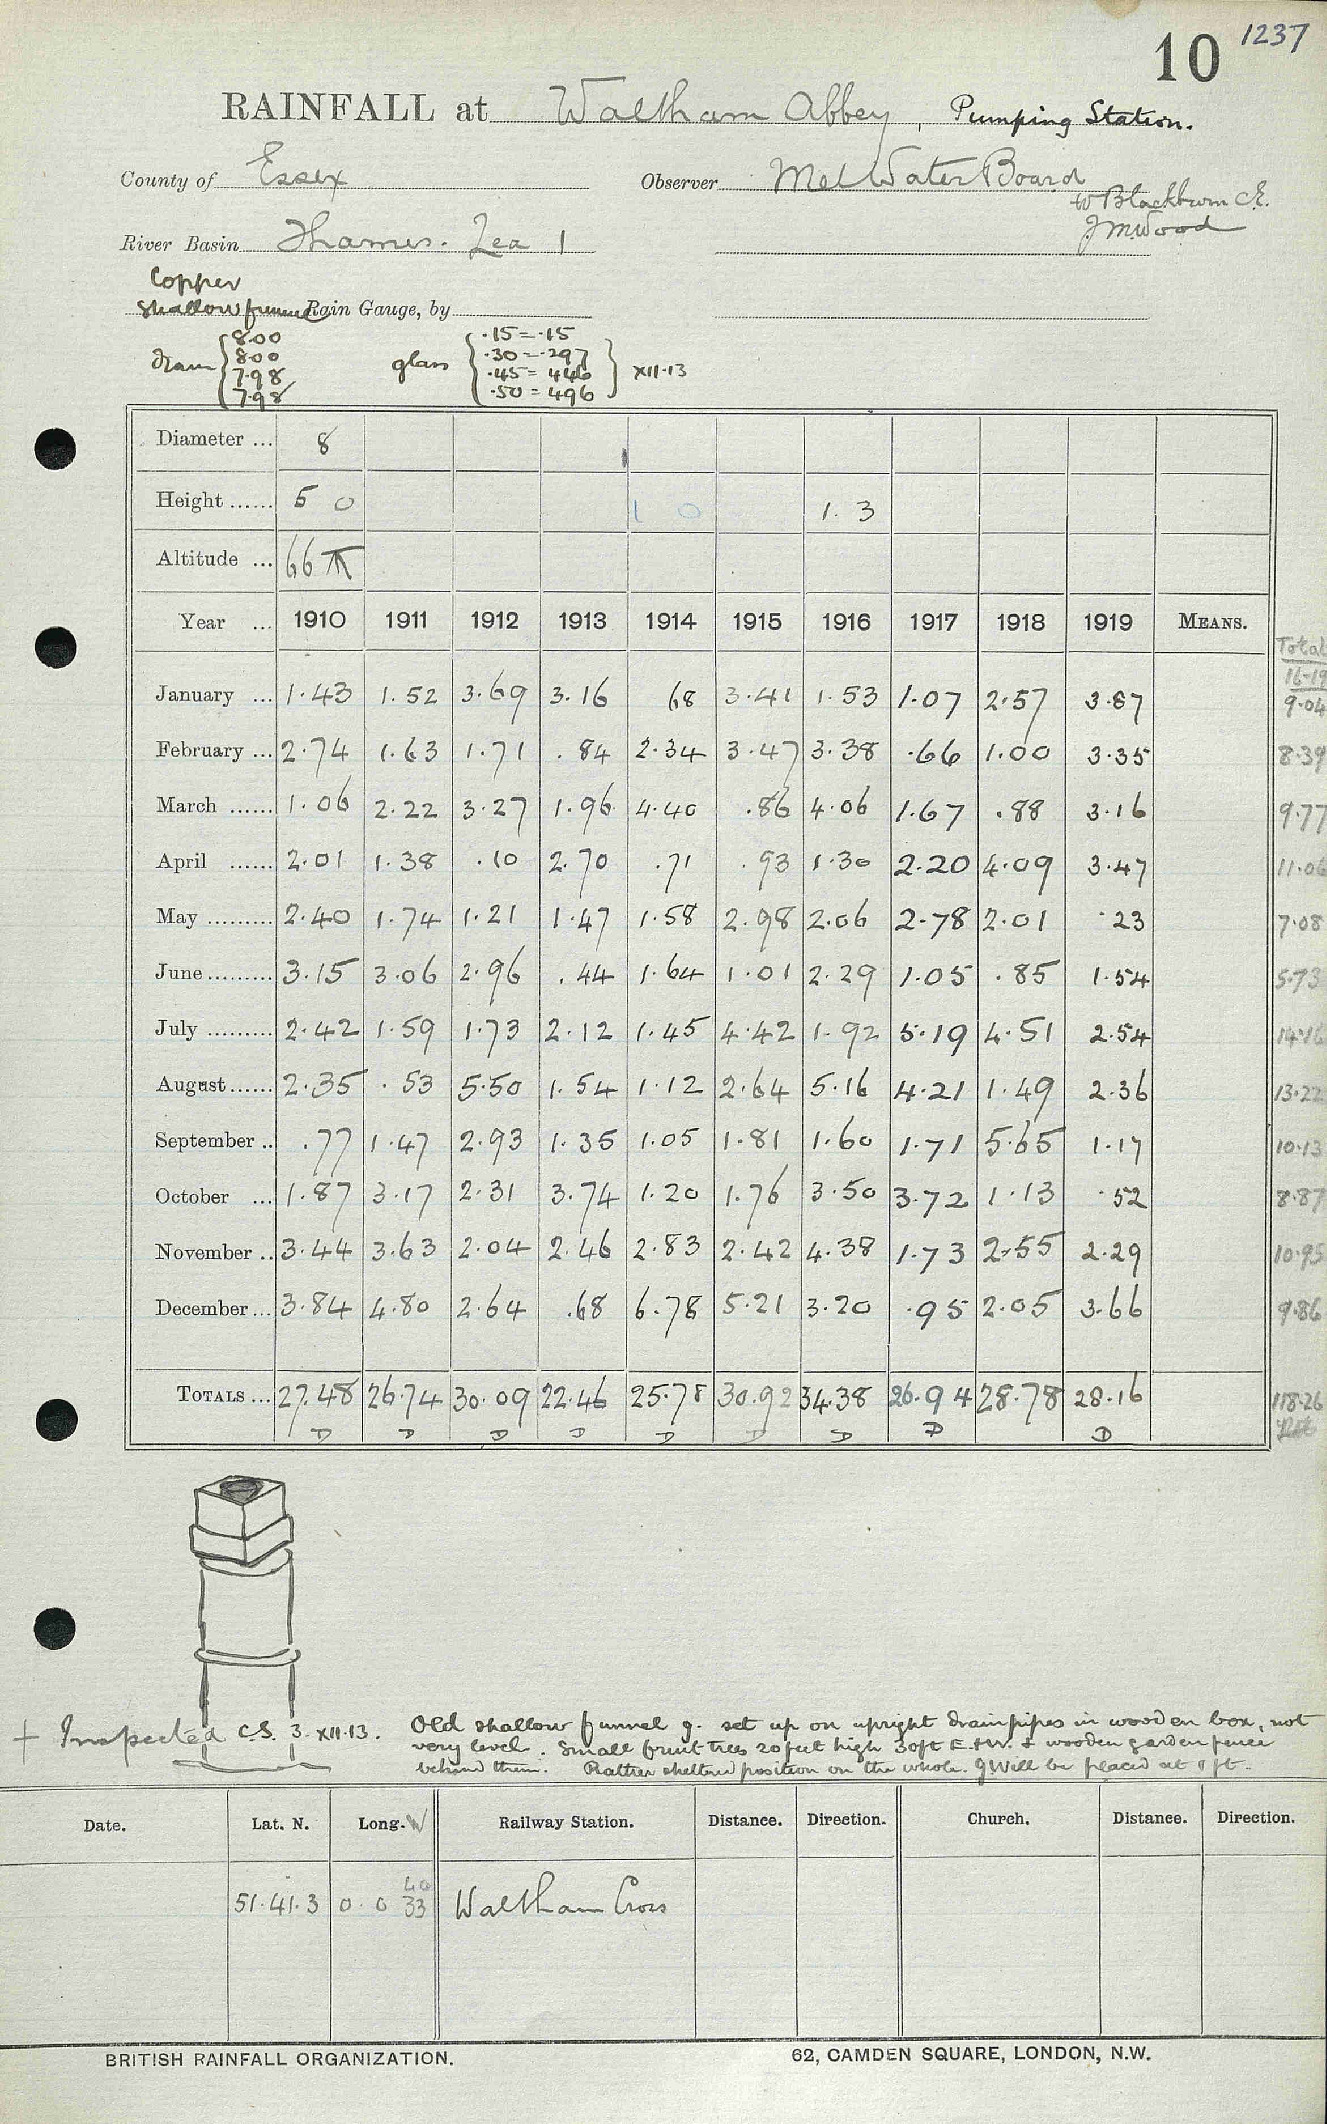 10 1237
RAINFALL at Waltham Abbey, Pumping Station.
County of Essex Observer Met Water Board
W Blackburn C.E.
River Basin Thames. Lea 1 J M Wood
Copper
Shallow funnel Rain Gauge, by
diam 8.00 8.00 7.98 7.98 glass .15 = .15 .30 = .297 .45 = 446 .50 = 496 XII.13
Diameter ... 8
Height ...... 5 0 1 0 1. 3
Altitude ... 66
Year ... 1910 1911 1912 1913 1914 1915 1916 1917 1918 1919 MEANS. Total 16-19
January ... 1.43 1.52 3.69 3.16 68 3.41 1.53 1.07 2.57 3.87 9.04
February ... 2.74 1.63 1.71 .84 2.34 3.47 3.38 .66 1.00 3.35 8.39
March ...... 1.06 2.22 3.27 1.96 4.40 .86 4.06 1.67 .88 3.16 9.77
April ...... 2.01 1.38 .10 2.70 .71 .93 1.30 2.20 4.09 3.47 11.06
May ......... 2.40 1.74 1.21 1.47 1.58 2.98 2.06 2.78 2.01 .23 7.08
June ......... 3.15 3.06 2.96 .44 1.64 1.01 2.29 1.05 .85 1.54 5.73
July ......... 2.42 1.59 1.73 2.12 1.45 4.42 1.92 5.19 4.51 2.54 14.16
August ...... 2.35 .53 5.50 1.54 1.12 2.64 5.16 4.21 1.49 2.36 13.22
September .. .77 1.47 2.93 1.35 1.05 1.81 1.60 1.71 5.65 1.17 10.13
October ... 1.87 3.17 2.31 3.74 1.20 1.76 3.50 3.72 1.13 .52 8.87
November .. 3.44 3.63 2.04 2.46 2.83 2.42 4.38 1.73 2.55 2.29 10.95
December ... 3.84 4.80 2.64 .68 6.78 5.21 3.20 .95 2.05 3.66 9.86
TOTALS ... 27.48 26.74 30.09 22.46 25.78 30.92 34.38 26.94 28.78 28.16 118.26
D D D D D D D D D
+ Inspected C.S. 3. XII.13. Old shallow funnel g. set up on upright drainpipes in wooden box, not
very level. Small fruit trees 20 feet high 30ft E. & W. & wooden garden fence
behind them. Rather sheltered position on the whole. g Will be placed at 1 ft.
Date. Lat. N. Long. W Railway Station. Distance. Direction. Church. Distance. Direction.
40
51.41.3 0. 0 33 Waltham Cross
BRITISH RAINFALL ORGANIZATION. 62, CAMDEN SQUARE, LONDON, N.W.